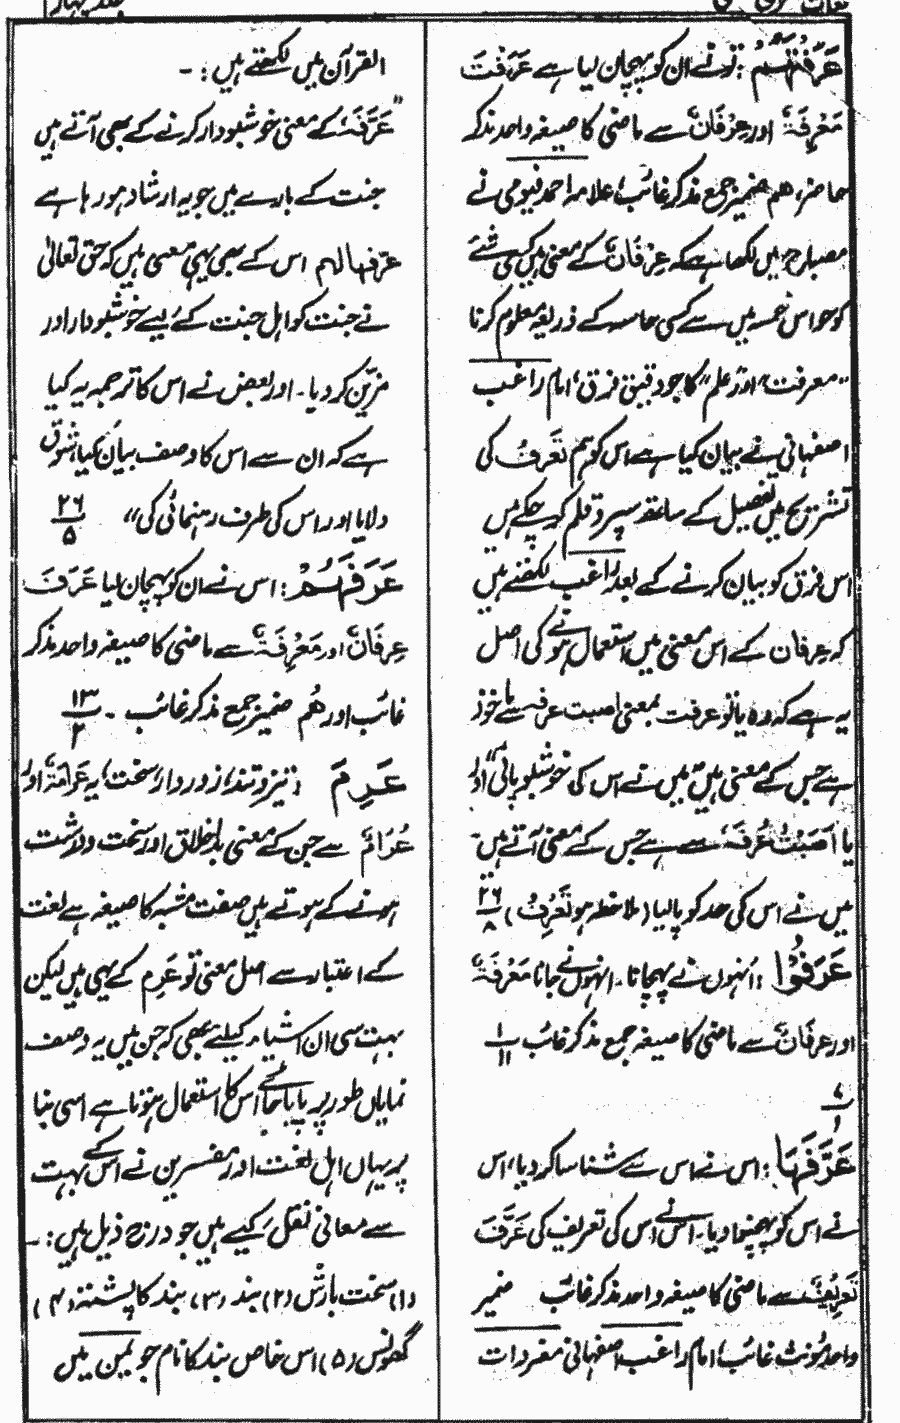 عَرَفْتَهُمْ: تو نے ان کو پہچان لیا ہے عَرَفْتَ
مَعْرِفَۃٌ اور عِرْفَانٌ سے ماضی کا صیغہ واحد مذکر
حاضر، ھم ضمیر جمع مذکر غائب، علامہ احمد فیومی نے
مصباح میں لکھا ہے کہ عِرْفَانٌ کے معنی ہیں کسی شئے
کو حواس خمسہ میں سے کسی حاسہ کے ذریعہ معلوم کرنا
"معرفت" اور "علم" کا جو دقیق فرق، امام راغب
اصفہانی نے بیان کیا ہے اس کو ہم تَعْرِفُ کی
تشریح میں تفصیل کے ساتھ سپرد قلم کر چکے ہیں
اس فرق کو بیان کرنے کے بعد راغب لکھتے ہیں
کہ عرفان کے اس معنی میں استعمال ہونے کی اصل
یہ ہے کہ وہ یا تو عرفت بمعنی اصبت عرفہ سے ماخوذ
ہے جس کے معنی ہیں "میں نے اس کی خوشبو پائی" اور
یا اَصَبْتُ عُرْفَہٗ سے ہے جس کے معنی آتے ہیں
میں نے اس کی حد کو پا لیا (ملاحظہ ہو تَعْرِفُ) ۲۶/۸
عَرَفُوْا: انہوں نے پہچانا۔ انہوں نے جانا مَعْرِفَۃٌ
اور عِرْفَانٌ سے ماضی کا صیغہ جمع مذکر غائب ۱/۱۱
۷/۱
عَرَّفَہَا: اس نے اس سے شناسا کر دیا، اس
نے اس کو پہچنوا دیا۔ اس نے اس کی تعریف کی عَرَّفَ
تَعْرِیْفٌ سے ماضی کا صیغہ واحد مذکر غائب ضمیر
واحد مونث غائب، امام راغب اصفہانی مفردات
القرآن میں لکھتے ہیں:۔
"عَرَّفَہٗ کے معنی خوشبودار کرنے کے بھی آتے ہیں
جنت کے بارے میں جو یہ ارشاد ہو رہا ہے
عرّفہا لہم اس کے بھی یہی معنی ہیں کہ حق تعالیٰ
نے جنت کو اہل جنت کے لیے خوشبودار اور
مزین کر دیا۔ اور بعض نے اس کا ترجمہ یہ کیا
ہے کہ ان سے اس کا وصف بیان کیا، شوق
دلایا اور اس کی طرف رہنمائی کی" ۲۶/۵
عَرَفَہُمْ: اس نے ان کو پہچان لیا عَرَفَ
عِرفَانٌ اور مَعْرِفَۃٌ سے ماضی کا صیغہ واحد مذکر
غائب اور ھُم ضمیر جمع مذکر غائب ۔ ۱۳/۲
عَرِمِ : تیز و تند، زور دار، سخت، یہ عَرَامَۃٌ اور
عُرَامٌ سے جن کے معنی بد اخلاق اور سخت و درشت
ہونے کے ہوتے ہیں صفت مشبہ کا صیغہ ہے لغت
کے اعتبار سے اصل معنی تو عَرِم کے یہی ہیں لیکن
بہت سی ان اشیاء کیلئے بھی کہ جن میں یہ وصف
نمایاں طور پر پایا جائے اس کا استعمال ہوتا ہے اسی بنا
پر یہاں اہل لغت اور مفسرین نے اس کے بہت
سے معانی نقل کیے ہیں جو درج ذیل ہیں:۔
(۱) سخت بارش (۲) بند (۳) بند کا پشتہ (۴)
گھونس (۵) اس خاص بند کا نام جو یمن میں